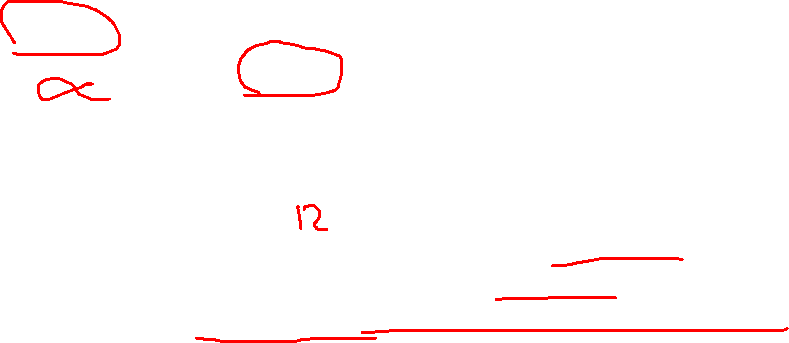 ∝
12